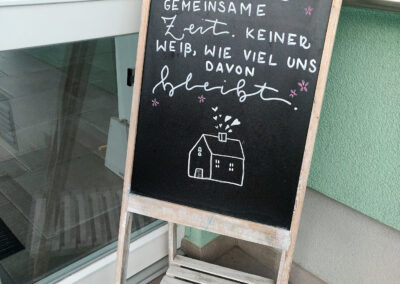 GEMEINSAME
Zeit. KEINER
WEIß, WIE VIEL UNS
DAVON
bleibt.